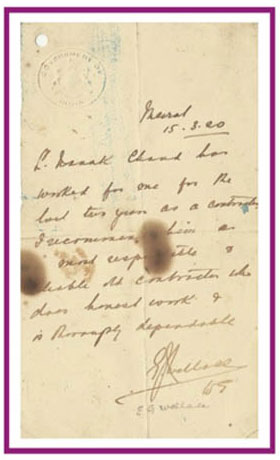 GOVERNMENT OF
INDIA
Meerut
15.3.20
L. Nanak Chand has
worked for me for the
last two years as a contractor
I recommend him as
most respectable &
reliable contractor who
does honest work &
is thoroughly dependable
E G Wallace
E G Wallace